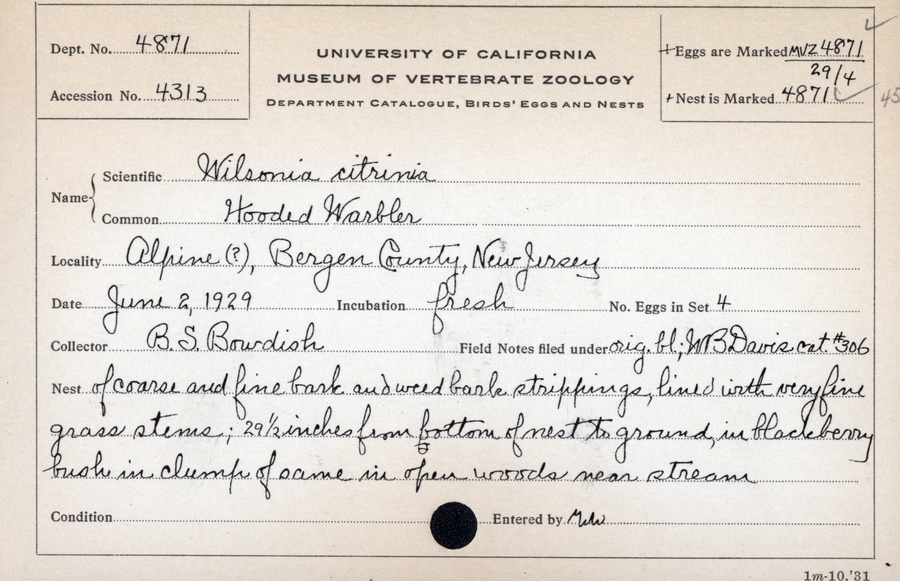 Dept. No. 4871
Accession No. 4313
UNIVERSITY OF CALIFORNIA
MUSEUM OF VERTEBRATE ZOOLOGY
DEPARTMENT CATALOGUE, BIRDS' EGGS AND NESTS
+Eggs are Marked MVZ 4871
29/4
+Nest is Marked 4871
45
Name
Scientific Wilsonia citrinia
Common Hooded Warbler
Locality Alpine (?), Bergen County, New Jersey
Date June 2, 1929 Incubation fresh No. Eggs in Set 4
Collector B. S. Bowdish Field Notes filed under orig. bl; WB Davis cat. #306
Nest of coarse and fine bark and weed bark strippings, lined with very fine
grass stems; 29 1/2 inches from bottom of nest to ground, in blackberry
bush in clump of same in open woods near stream
Condition Entered by
1m-10,'31